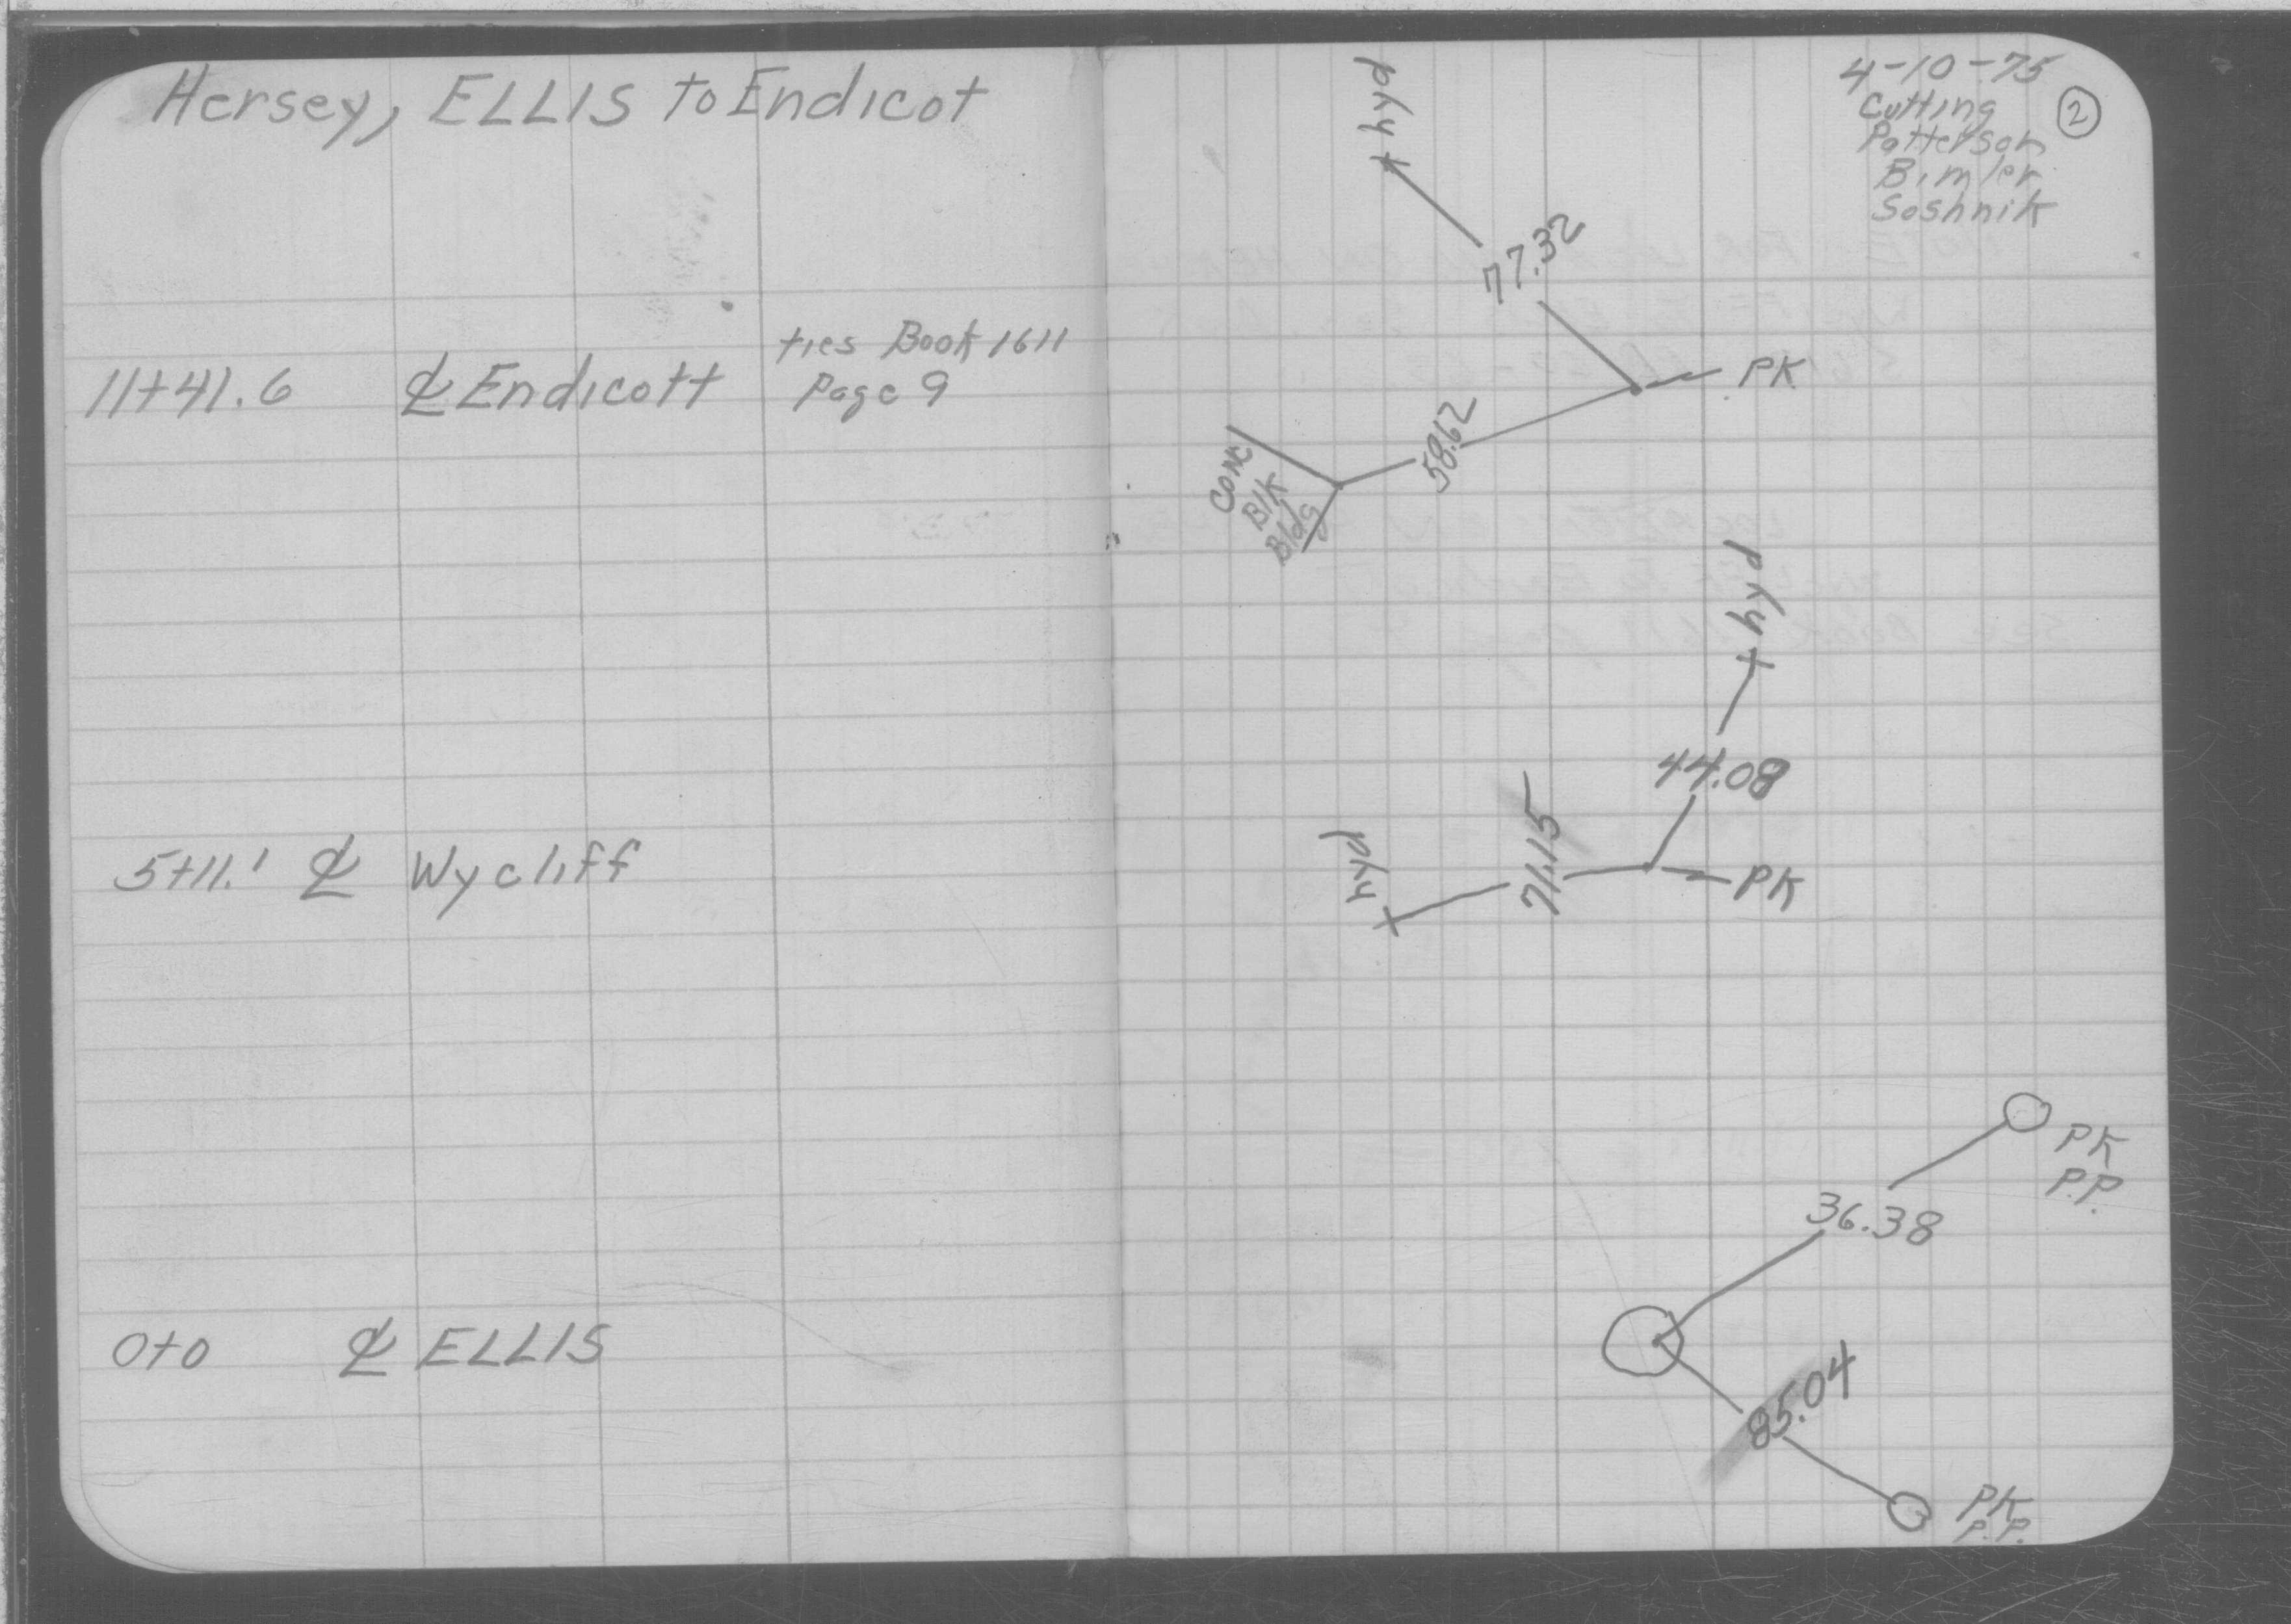 Hersey, ELLIS to Endicot
ties Book 1611
11+41.6 ℄ Endicott Page 9
5+11.1 ℄ Wycliff
0+0 ℄ ELLIS
4-10-75
Cutting
Patterson
Bimler
Soshnik
2
hyd
77.32
PK
58.62
Conc
Blk
Bldg
hyd
44.08
hyd
71.15
PK
PK
P.P.
36.38
85.04
PK
P.P.